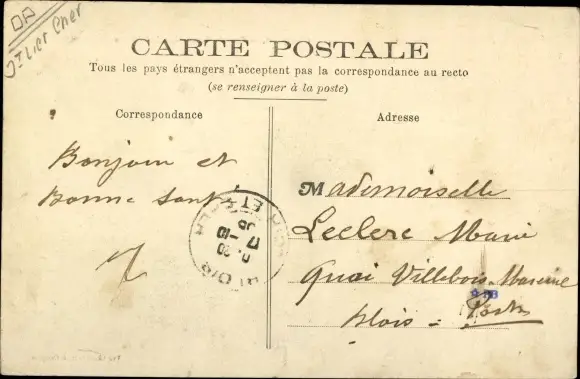 OR
CARTE POSTALE
Tous les pays étrangers n'acceptent pas la correspondance au recto
(se renseigner à la poste)
Correspondance
Adresse
Bonjour et
Bonne Santé
Mademoiselle
Leclerc Marie
Quai Villebois-Mareuil
Blois -
ET
17